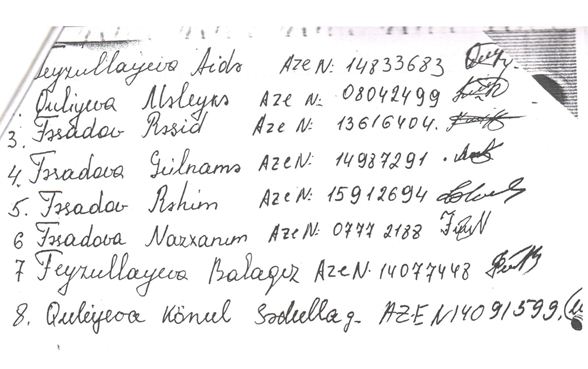 Feyzullayeva Aida AzeN: 14833683
Quliyeva Mələykə AzeN: 08042499
3. Əsədov Rəşid AzeN: 13616404.
4. Əsədova Gülnamə AzeN: 14987291.
5. Əsədov Rəhim AzeN: 15912694
6 Əsədova Nazxanım AzeN: 07772188
7 Feyzullayeva Balaqız AzeN. 14077448
8. Quliyeva Könul AZE N14091599.